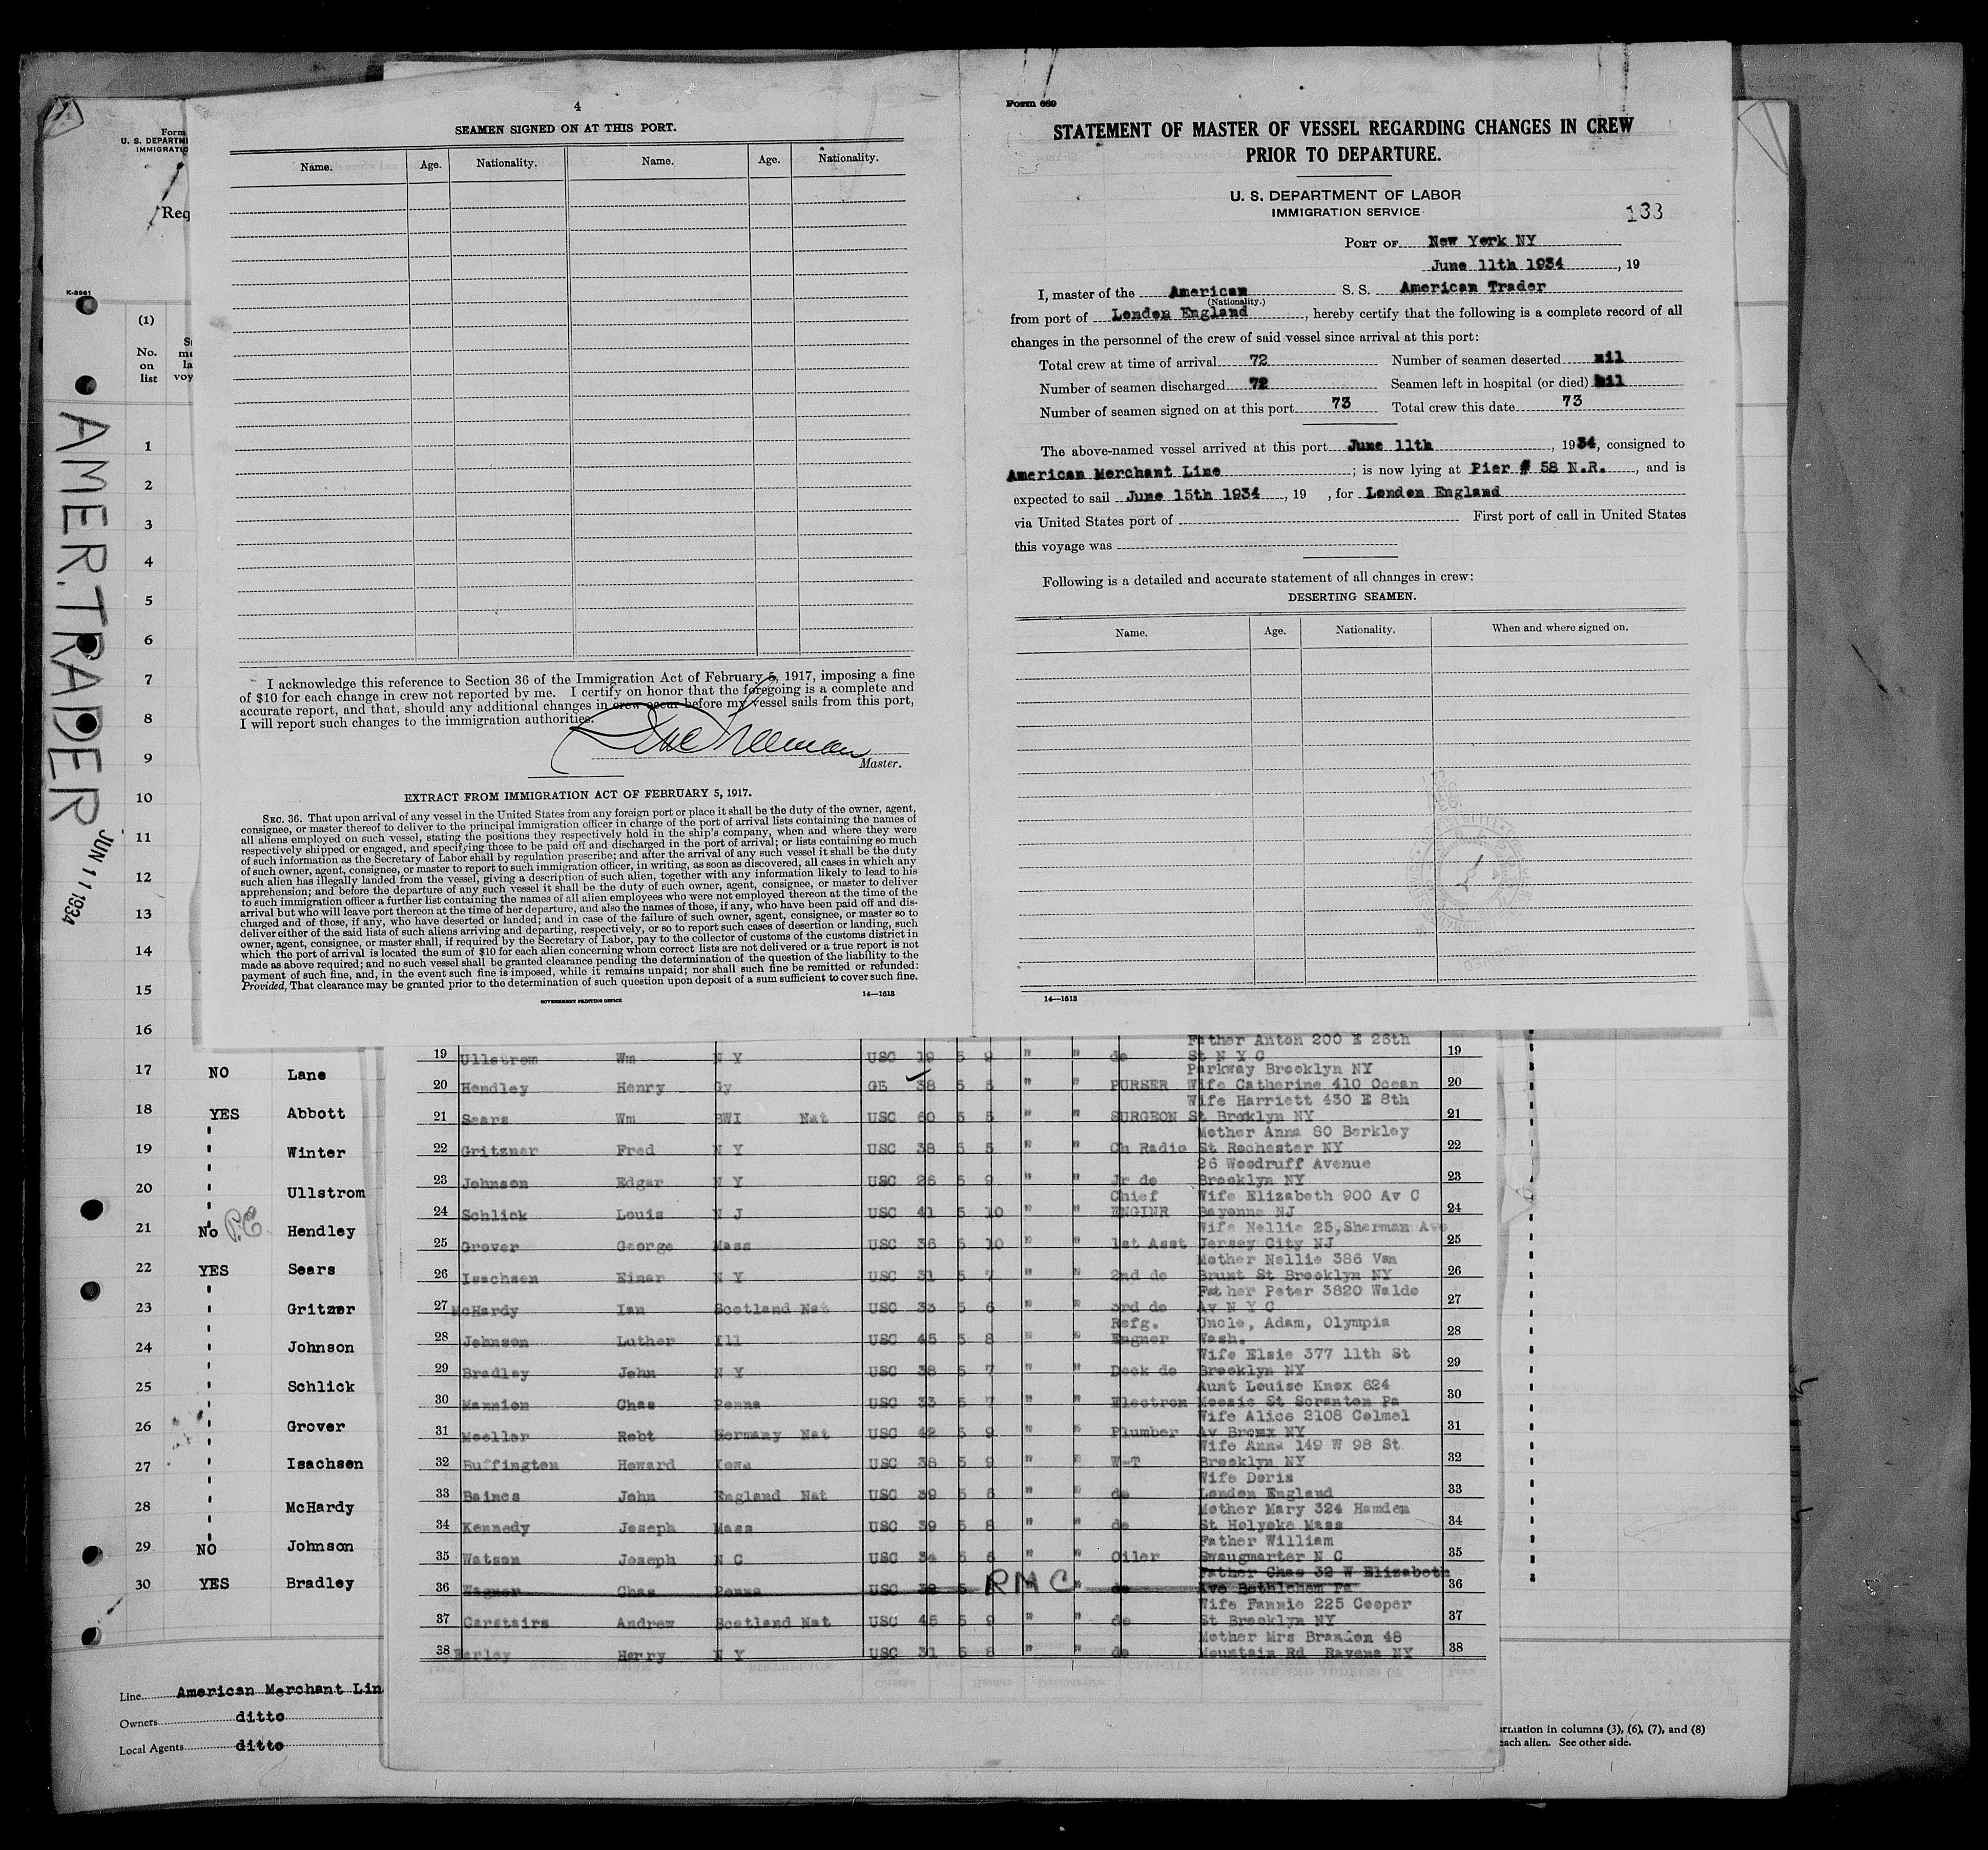 4
SEAMEN SIGNED ON AT THIS PORT.
Name. Age. Nationality. Name. Age. Nationality.
I acknowledge this reference to Section 36 of the Immigration Act of February 5, 1917, imposing a fine
of $10 for each change in crew not reported by me. I certify on honor that the foregoing is a complete and
accurate report, and that, should any additional changes in crew occur before my vessel sails from this port,
I will report such changes to the immigration authorities.
Master.
EXTRACT FROM IMMIGRATION ACT OF FEBRUARY 5, 1917.
SEC. 36. That upon arrival of any vessel in the United States from any foreign port or place it shall be the duty of the owner, agent,
consignee, or master thereof to deliver to the principal immigration officer in charge of the port of arrival lists containing the names of
all aliens employed on such vessel, stating the positions they respectively hold in the ship's company, when and where they were
respectively shipped or engaged, and specifying those to be paid off and discharged in the port of arrival; or lists containing so much
of such information as the Secretary of Labor shall by regulation prescribe; and after the arrival of any such vessel it shall be the duty
of such owner, agent, consignee, or master to report to such immigration officer, in writing, as soon as discovered, all cases in which any
such alien has illegally landed from the vessel, giving a description of such alien, together with any information likely to lead to his
apprehension; and before the departure of any such vessel it shall be the duty of such owner, agent, consignee, or master to deliver
to such immigration officer a further list containing the names of all alien employees who were not employed thereon at the time of the
arrival but who will leave port thereon at the time of her departure, and also the names of those, if any, who have been paid off and dis-
charged and of those, if any, who have deserted or landed; and in case of the failure of such owner, agent, consignee, or master so to
deliver either of the said lists of such aliens arriving and departing, respectively, or so to report such cases of desertion or landing, such
owner, agent, consignee, or master shall, if required by the Secretary of Labor, pay to the collector of customs of the customs district in
which the port of arrival is located the sum of $10 for each alien concerning whom correct lists are not delivered or a true report is not
made as above required; and no such vessel shall be granted clearance pending the determination of the question of the liability to the
payment of such fine, and, in the event such fine is imposed, while it remains unpaid; nor shall such fine be remitted or refunded:
Provided, That clearance may be granted prior to the determination of such question upon deposit of a sum sufficient to cover such fine.
GOVERNMENT PRINTING OFFICE 14—1613
Form 689
STATEMENT OF MASTER OF VESSEL REGARDING CHANGES IN CREW
PRIOR TO DEPARTURE.
U. S. DEPARTMENT OF LABOR
IMMIGRATION SERVICE
133
PORT OF New York NY
June 11th 1934, 19
I, master of the American S. S. American Trader
(Nationality.)
from port of London England, hereby certify that the following is a complete record of all
changes in the personnel of the crew of said vessel since arrival at this port:
Total crew at time of arrival 72 Number of seamen deserted nil
Number of seamen discharged 72 Seamen left in hospital (or died) nil
Number of seamen signed on at this port 73 Total crew this date 73
The above-named vessel arrived at this port June 11th, 1934, consigned to
American Merchant Line; is now lying at Pier # 58 N.R., and is
expected to sail June 15th 1934, 19 , for London England
via United States port of First port of call in United States
this voyage was
Following is a detailed and accurate statement of all changes in crew:
DESERTING SEAMEN.
Name. Age. Nationality. When and where signed on.
14—1613
Form
U. S. DEPARTM
IMMIGRATIO
Req
K-3961
(1)
No.
on
list
AMER.TRADER
JUN 11 1934
1
2
3
4
5
6
7
8
9
10
11
12
13
14
15
16
17 NO Lane
18 YES Abbott
19 " Winter
20 " Ullstrom
21 No P.E Hendley
22 YES Sears
23 " Gritzner
24 " Johnson
25 " Schlick
26 " Grover
27 " Isachsen
28 " McHardy
29 NO Johnson
30 YES Bradley
Line American Merchant Lin
Owners ditto
Local Agents ditto
Father Anton 200 E 26th
19 Ullstrom Wm N Y USC 19 5 9 " " do St N Y C 19
Parkway Brooklyn NY
20 Hendley Henry Gy GE 38 5 5 " " PURSER Wife Catherine 410 Ocean 20
Wife Harriett 430 E 8th
21 Sears Wm BWI Nat USC 60 5 5 " " SURGEON St Brooklyn NY 21
Mother Anna 80 Berkley
22 Gritzner Fred N Y USC 38 5 5 " " Ch Radio St Rochester NY 22
26 Woodruff Avenue
23 Johnson Edgar N Y USC 26 5 9 " " Jr do Brooklyn NY 23
Chief Wife Elizabeth 900 Av C
24 Schlick Louis N J USC 41 5 10 " " ENGINR Bayonne NJ 24
Wife Nellie 25,Sherman Ave
25 Grover George Mass USC 36 5 10 " " 1st Asst Jersey City NJ 25
Mother Nellie 386 Van
26 Isachsen Einar N Y USC 31 5 7 " " 2nd do Brunt St Brooklyn NY 26
Father Peter 3820 Waldo
27 McHardy Ian Scotland Nat USC 33 5 6 " " 3rd do Av N Y C 27
Refg. Uncle, Adam, Olympia
28 Johnson Luther Ill USC 45 5 8 " " Engner Wash. 28
Wife Elsie 377 11th St
29 Bradley John N Y USC 38 5 7 " " Deck do Brooklyn NY 29
Aunt Louise Knox 624
30 Mannion Chas Penna USC 33 5 7 " " Electron Moosic St Scranton Pa 30
Wife Alice 2108 Colmel
31 Moeller Robt Hermany Nat USC 42 5 9 " " Plumber Av Bronx NY 31
Wife Anna 149 W 98 St
32 Buffington Howard Iowa USC 38 5 9 " " W-T Brooklyn NY 32
Wife Doris
33 Baines John England Nat USC 39 5 6 " " do London England 33
Mother Mary 324 Hamden
34 Kennedy Joseph Mass USC 39 5 8 " " do St Holyoke Mass 34
Father William
35 Watson Joseph N C USC 34 5 6 " " Oiler Swaugmarter N C 35
Father Chas 32 W Elizabeth
36 Wagner Chas Penna USC 32 5 RMC " do Ave Bethlehem Pa 36
Wife Fannie 225 Cooper
37 Carstairs Andrew Scotland Nat USC 45 5 9 " " do St Brooklyn NY 37
Mother Mrs Brandon 48
38 Herry N Y USC 31 5 8 " " do Mountain Rd Ravena NY 38
rmation in columns (3), (6), (7), and (8)
each alien. See other side.